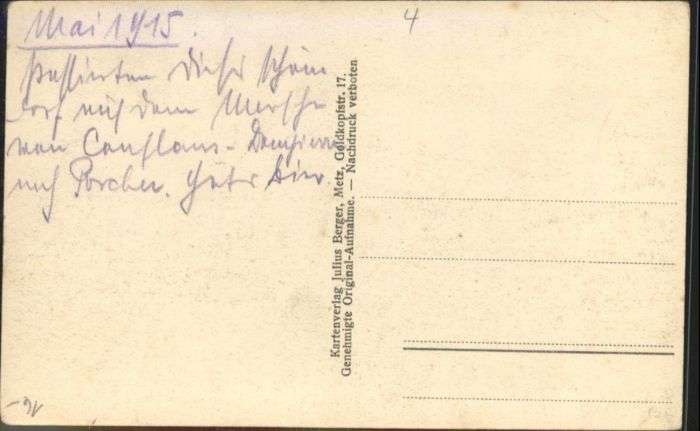 Mai 1915.
Passierten dieses schöne
Dorf auf dem Marsche
von Conflans-
nach Porcher.
4
Kartenverlag Julius Berger, Metz, Goldkopfstr. 17.
Genehmigte Original-Aufnahme. — Nachdruck verboten